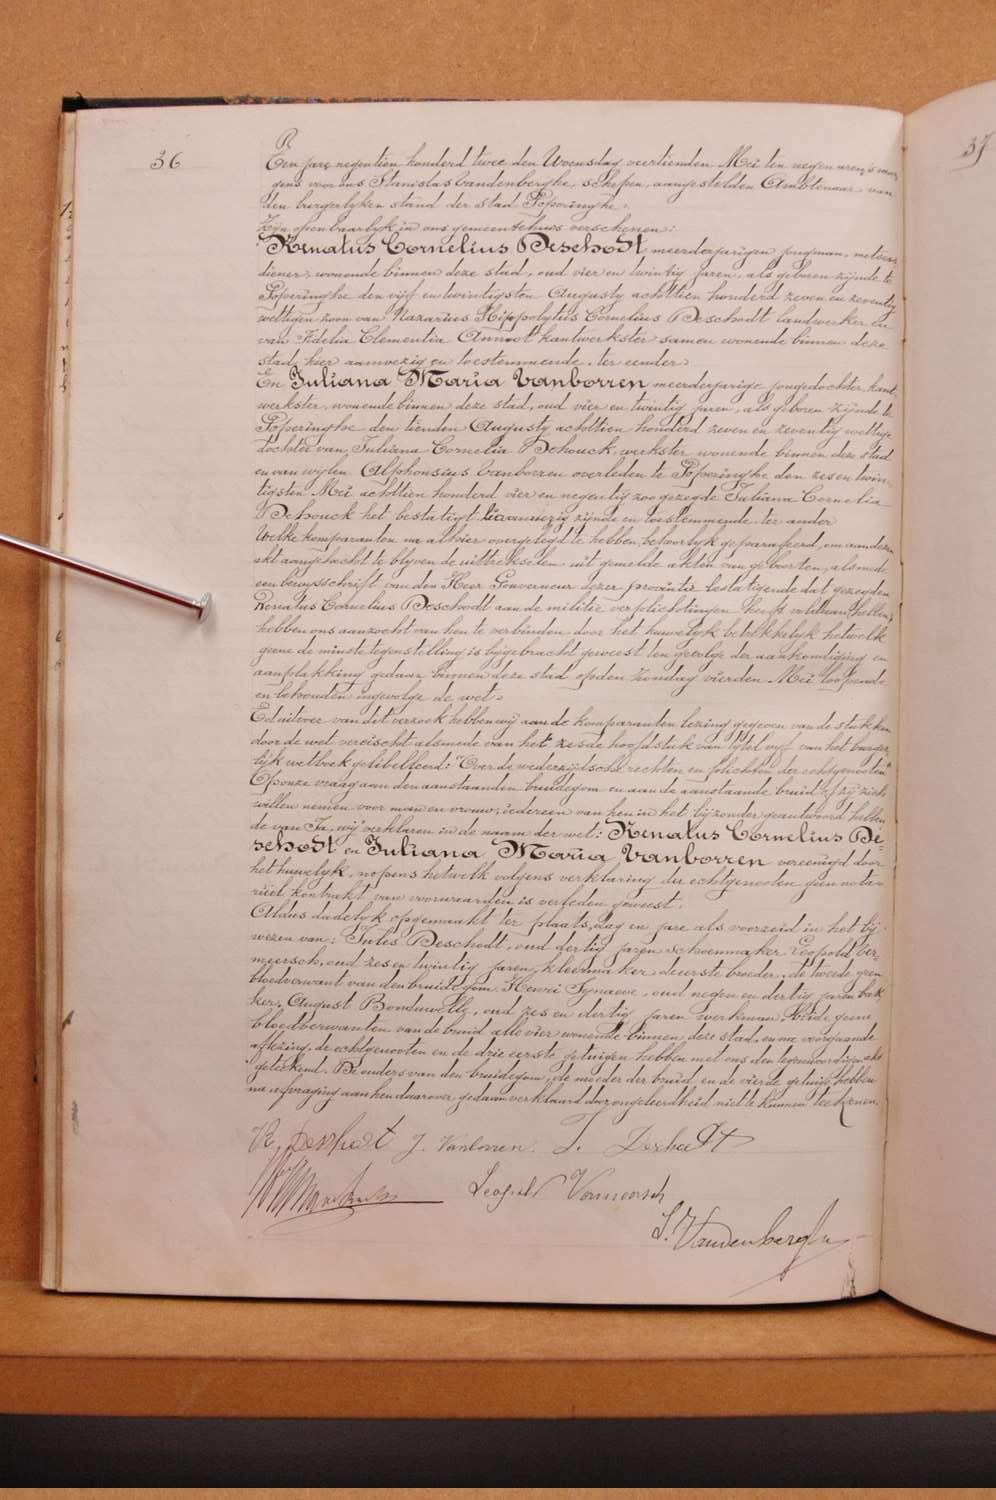 36
37
R
Een jare negentien honderd twee den Woensdag veertienden Mei ten negen uren 's mor-
gens voor ons Stanislas Vandenberghe, schepen, aangestelden Ambtenaar van
den burgerlyken stand der stad Poperinghe.
Zijn openbaarlyk in ons gemeentehuis verschenen:
Renatus Cornelius Deschodt meerderjarigen jongman,
diener, wonende binnen deze stad, oud vier en twintig jaren, als geboren zijnde te
Poperinghe den vijf en twintigsten Augusty achttien honderd zeven en zeventig
wettigen zoon van Nazarius Hippolytus Cornelius Deschodt landwerker en
van Fidelia Clementia Annoot kantwerkster samen wonende binnen deze
stad, hier aanwezig en toestemmende, ter eender.
En Juliana Maria Vanborren meerderjarige jongedochter, kant-
werkster, wonende binnen deze stad, oud vier en twintig jaren, als geboren zijnde te
Poperinghe den tienden Augusty achttien honderd zeven en zeventig wettige
dochter van Juliana Cornelia Dehouck, werkster wonende binnen deze stad
en van wylen Alphonsius Vanborren overleden te Poperinghe den zes en twin-
tigsten Mei achttien honderd vier en negentig zoo gezegde Juliana Cornelia
Dehouck het bestatigt hier aanwezig zijnde en toestemmende ter ander
Welke komparanten na alhier overgelegd te hebben, behoorlyk geparapheerd, om aan dezen
akt aangehecht te blyven de uittrekselen uit gemelde akten van geboorten, alsmede
een bewysschrift van den Heer Gouverneur dezer provintie bestatigende dat gezegden
Renatus Cornelius Deschodt aan de militie verplichtingen heeft voldaan, hebben
hebben ons aanzocht van hen te verbinden door het huwelyk betrekkelyk hetwelk
geene de minste tegenstelling is bygebracht geweest ten gevolge der aankondiging en
aanplakking gedaan binnen deze stad op den Zondag vierden Mei loopende
en behouden ingevolge de wet.
En uit over van dit verzoek hebben wij aan de komparanten lezing gegeven van de stukken
door de wet vereischt alsmede van het zesde hoofdstuk van tytel vyf van het burger-
lijk wetboek gelibelleerd: "Over de wederzijdsche rechten en plichten der echtgenooten"
Op onze vraag aan den aanstaanden bruidegom en aan de aanstaande bruid of zij zich
willen nemen voor man en vrouw, iedereen van hen in het bijzonder geantwoord hebben-
de van Ja, wij verklaren in de naam der wet: Renatus Cornelius De-
schodt en Juliana Maria Vanborren vereenigd door
het huwelyk, nopens hetwelk volgens verklaring der echtgenooten geen nota-
riëel kontrakt van voorwaarden is verleden geweest.
Aldus dadelyk opgemaakt ter plaats, dag en jare als voorzeid in het bij-
wezen van: Jules Deschodt, oud dertig jaren schoenmaker Leopold Ver-
meersch, oud zes en twintig jaren, kleermaker de eerste broeder, de tweede geen
bloedverwant van den bruidegom Henri Tynaeve, oud negen en dertig jaren bak-
ker, August Bonduwelle, oud zes en dertig jaren werkman beide geene
bloedverwanten van de bruid alle vier wonende binnen deze stad, en na voorgaande
aflezing, de echtgenooten en de drie eerste getuigen hebben met ons den tegenwoordigen akt
geteekend. De ouders van den bruidegom, de moeder der bruid en de vierde getuige hebben
na afvraging aan hen daarover gedaan verklaard door ongeleerdheid niet te kunnen teekenen.
R. Deschodt J. Vanborren J. Deschodt
Leopold Vermeersch
S. Vandenberghe